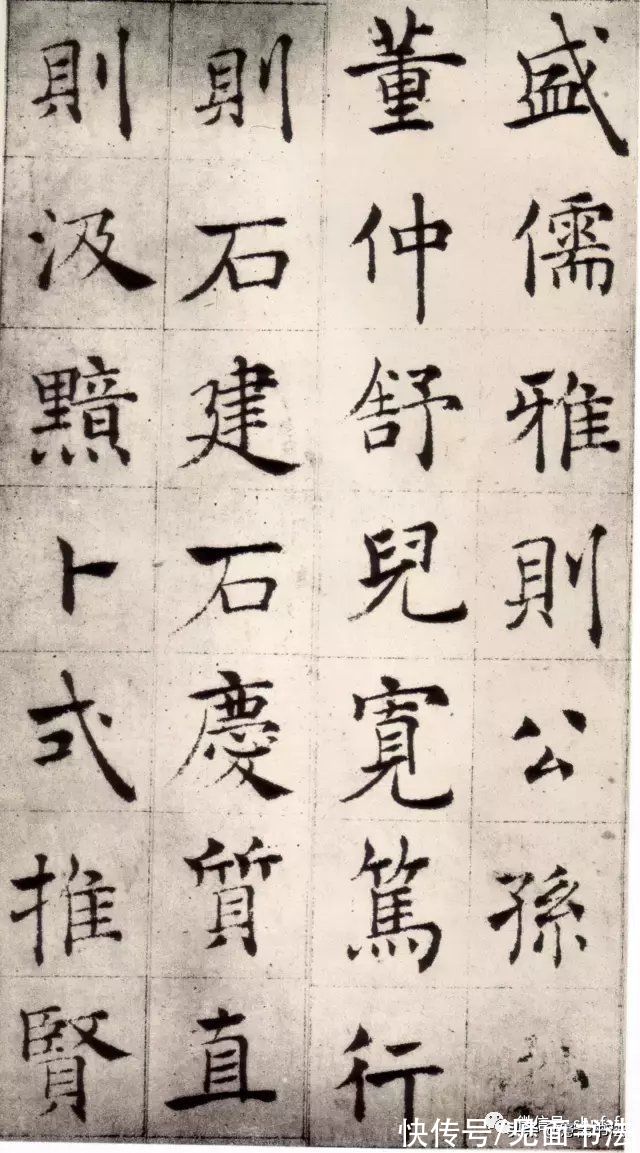 盛儒雅則公孫
董仲舒兒寬篤行
則石建石慶質直
則汲黯卜式推賢
快传号/见面书法
微信号: